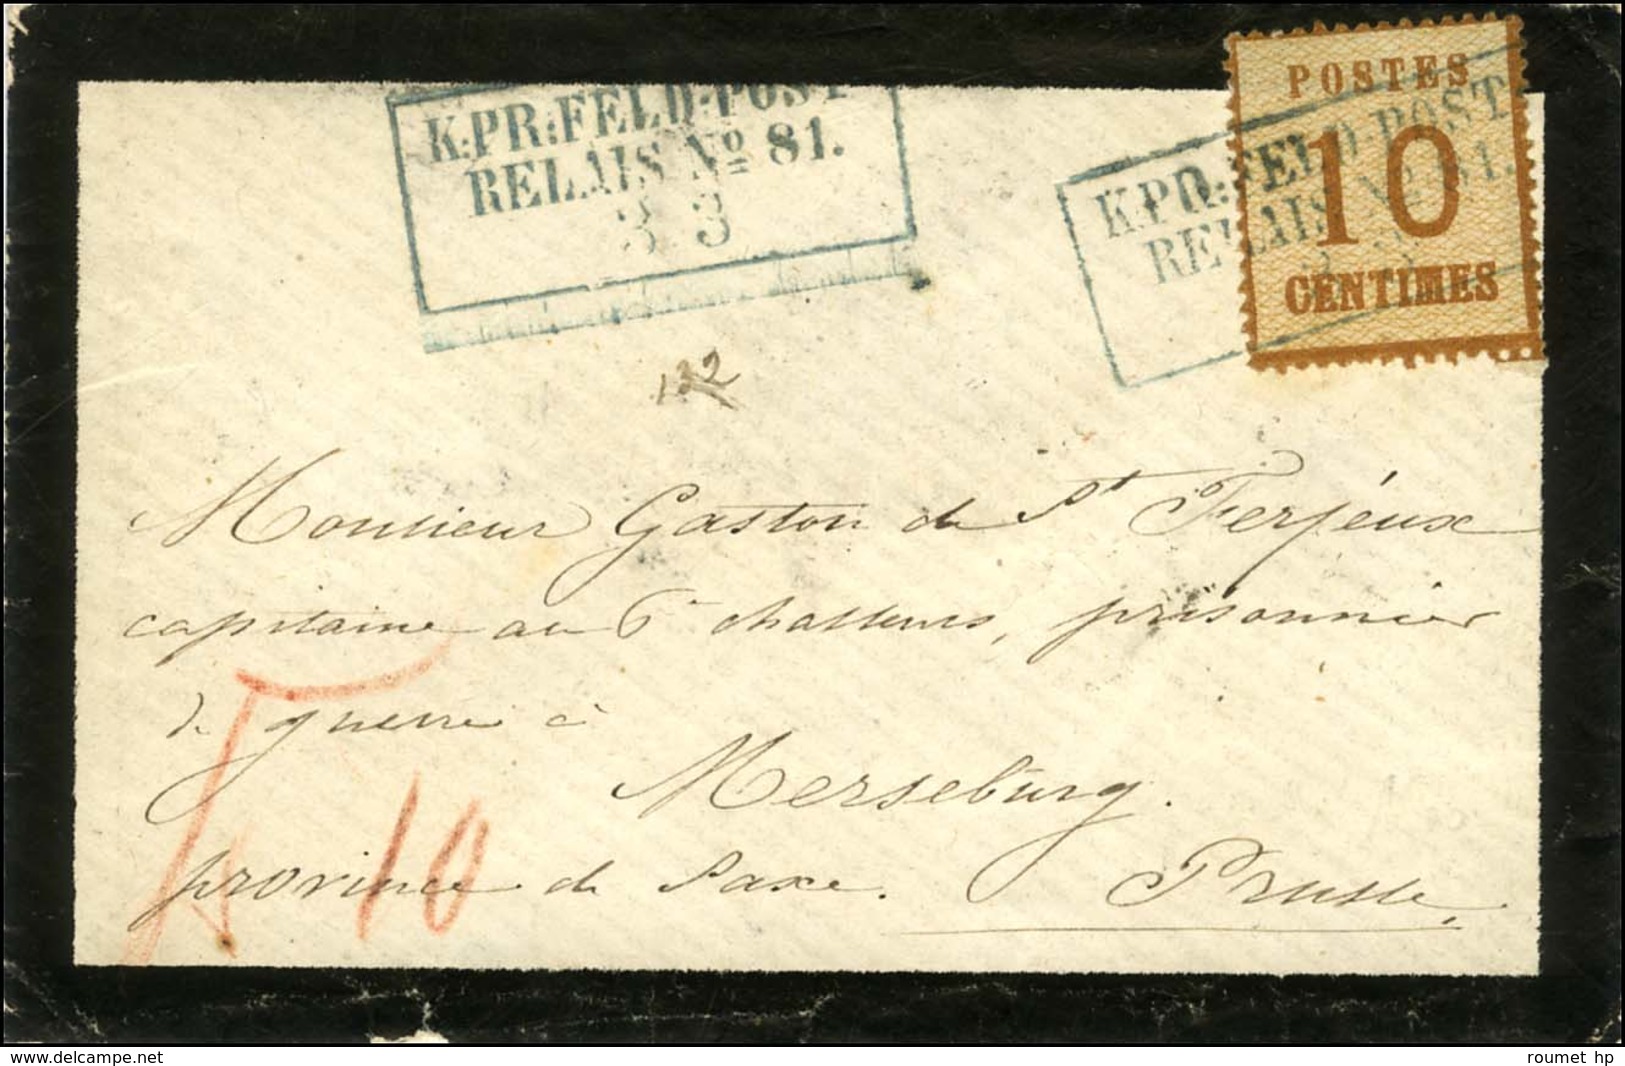 K:PR:FELD-POST
RELAIS No 81.
3 3
K:PR:FELD-POST
RELAIS No 81.
POSTES
10
CENTIMES
Monsieur Gaston de St Ferjeux
capitaine au 6e chasseurs, prisonnier
de guerre à
Merseburg.
province de Saxe. Prusse.
10
www.delcampe.net
roumet hp